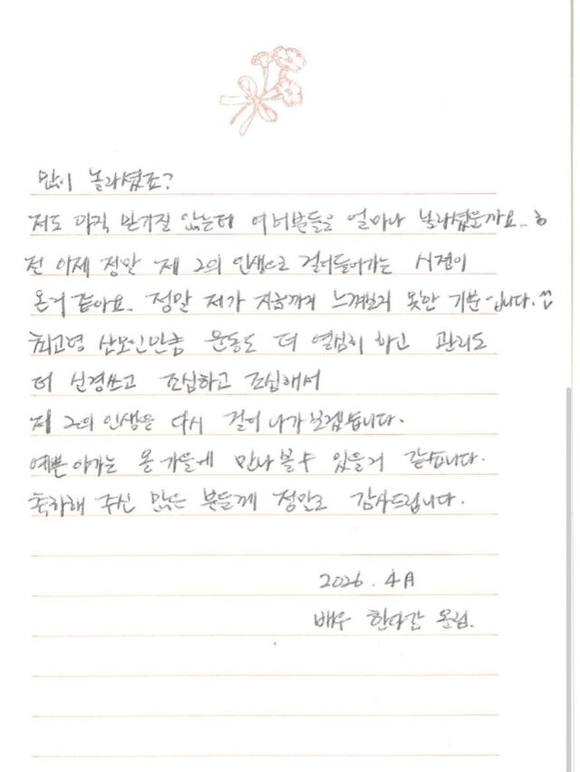 많이 놀라셨죠?
저도 아직 믿기질 않는데 여러분들은 얼마나 놀라셨을까요..ㅎ
전 이제 정말 제 2의 인생으로 걸어들어가는 시점이
온거 같아요. 정말 저가 지금까지 느껴보지 못한 기분입니다.^^
최고령 산모인만큼 운동도 더 열심히 하고 관리도
더 신경쓰고 조심하고 조심해서
제 2의 인생은 다시 걸어 나가보겠습니다.
예쁜 아가는 올 가을에 만나 볼 수 있을거 같습니다.
축하해 주신 많은 분들께 정말로 감사드립니다.
2026. 4月
배우 한다감 올림.